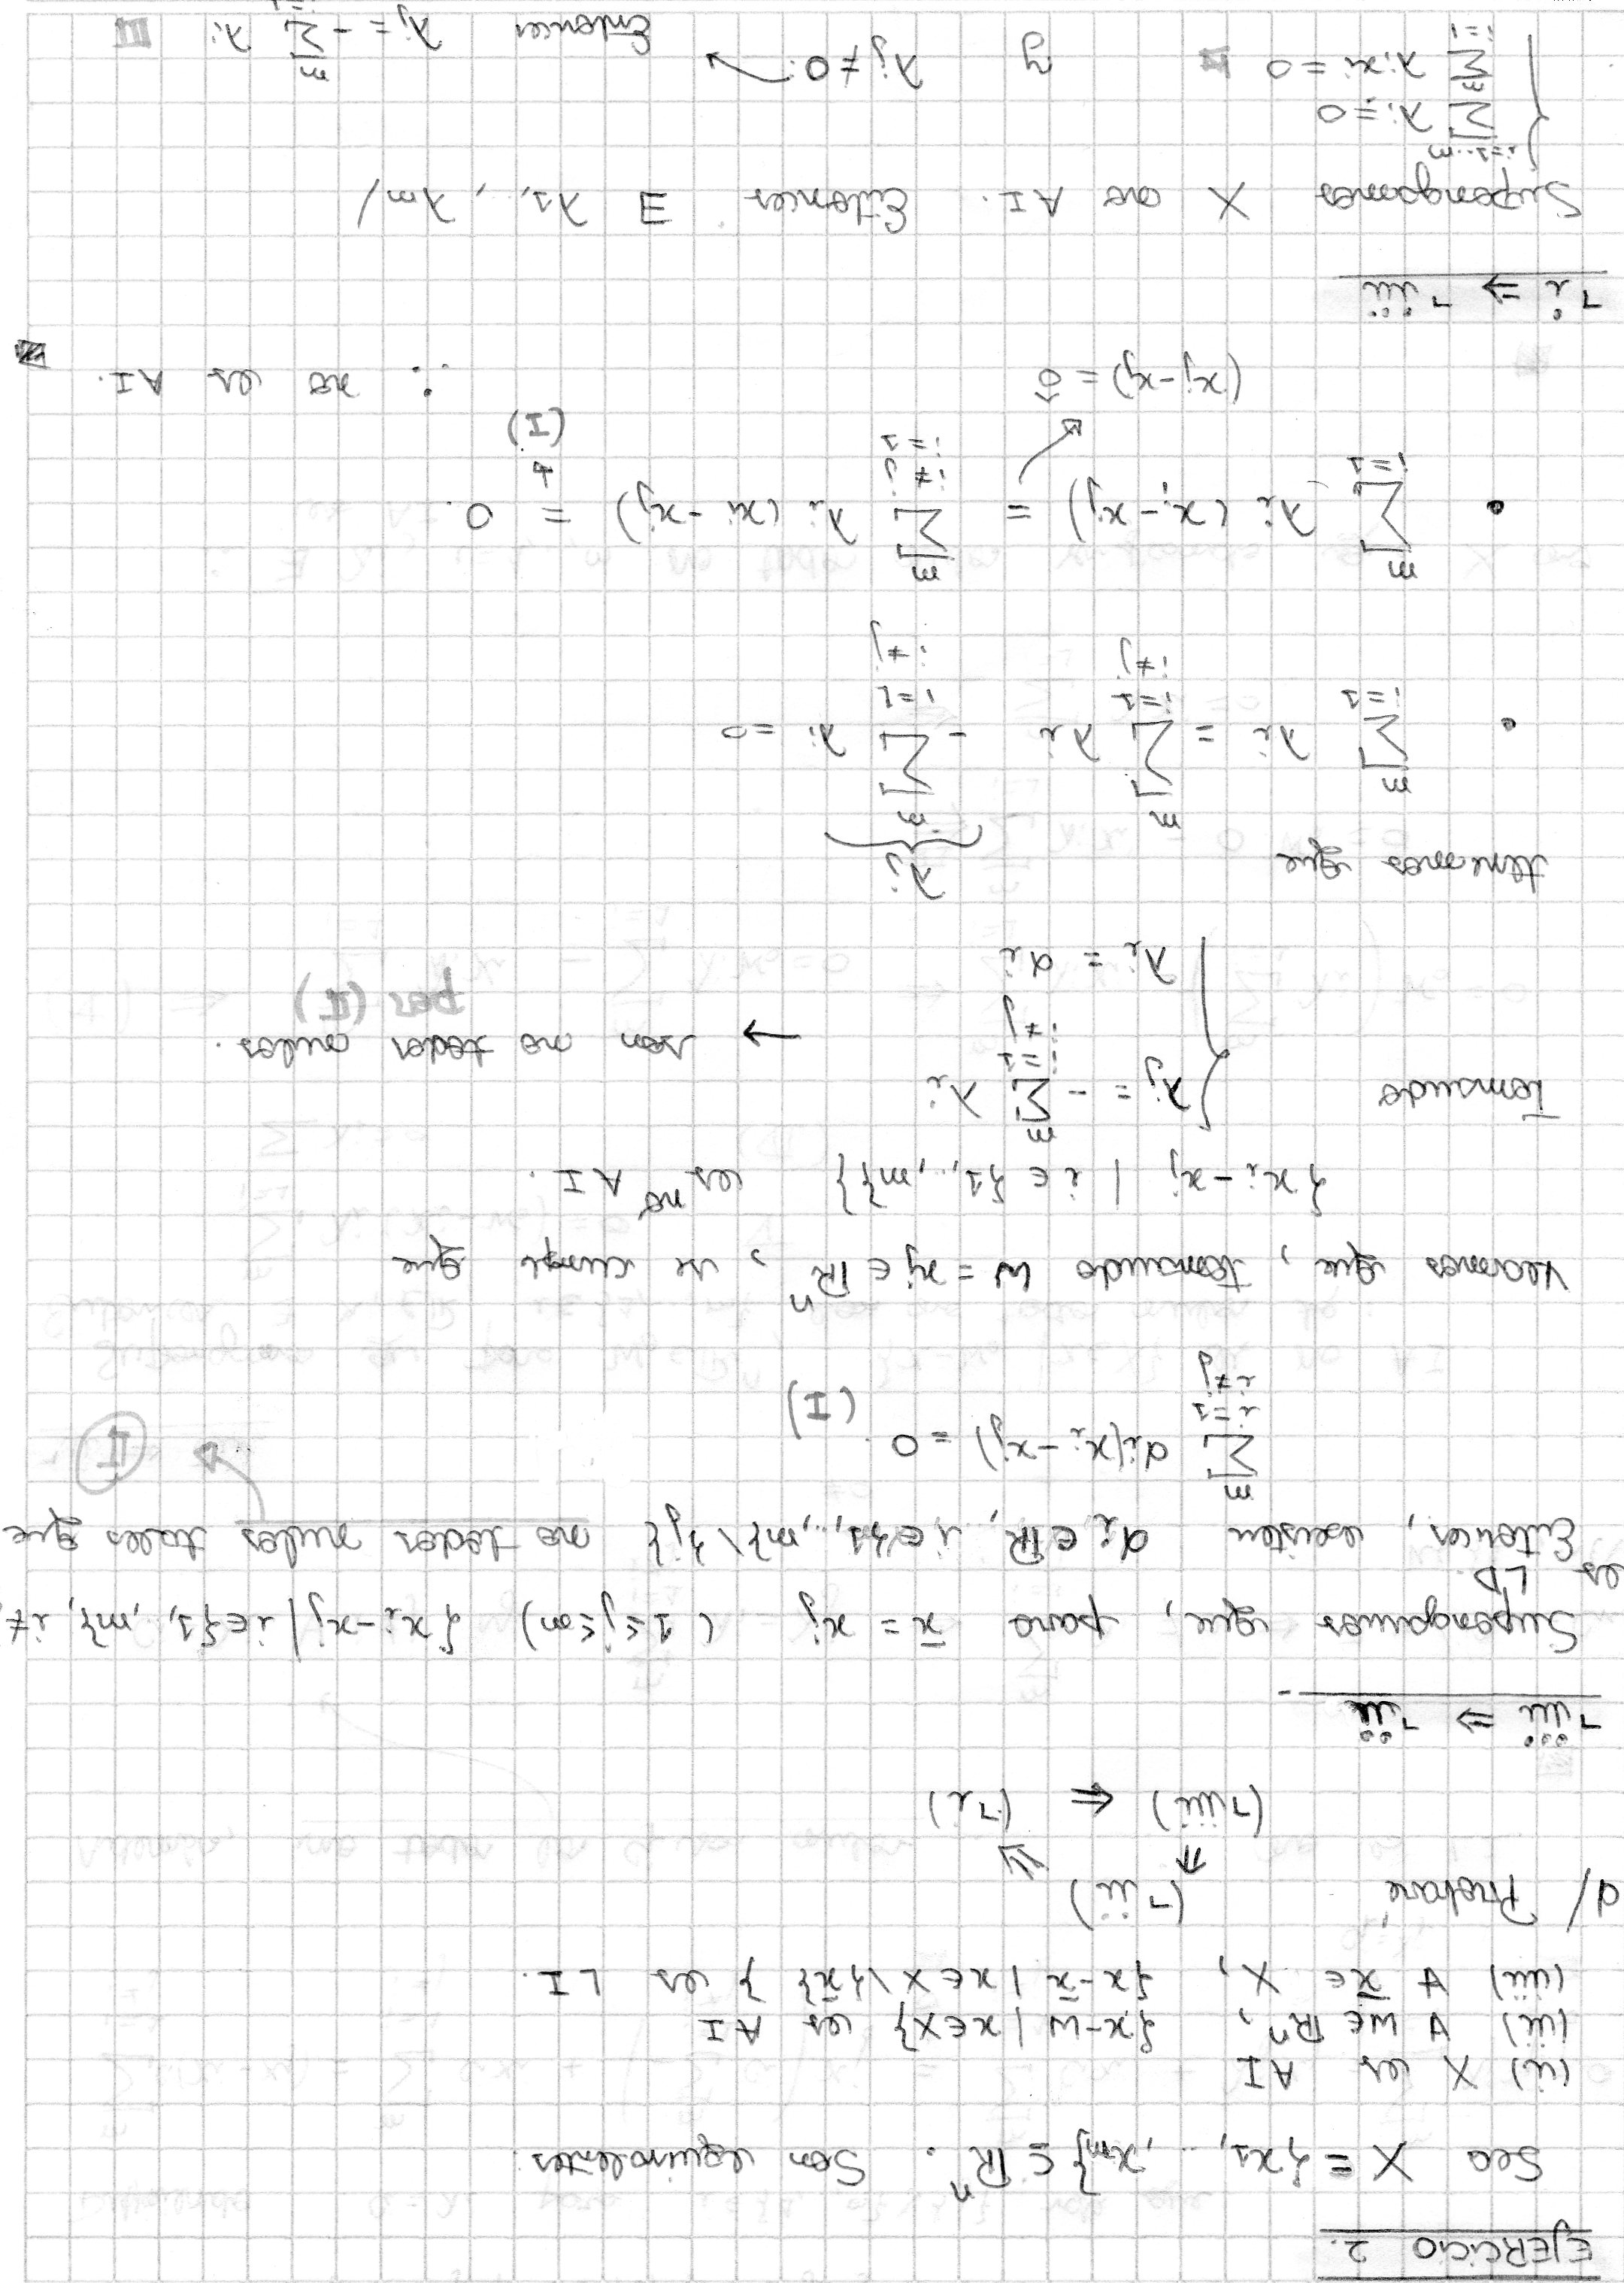 EJERCICIO 2.
Sea X = {x1, ..., xm} ⊆ ℝⁿ. Son equivalentes
(i) X es AI
(ii) ∀ w ∈ ℝⁿ, {x-w | x∈X} es AI
(iii) ∀ x̄ ∈ X, {x-x̄ | x∈X\{x̄}} es LI.
d/ Probaré (¬ii)
(¬iii) ⇐ (¬i)
¬iii ⇒ ¬ii
Supongamos que, para x̄ = xj (1≤j≤m) {xi-xj | i∈{1, ..., m}, i≠
es LD.
Entonces, existen αi∈ℝ, i∈{1, ..., m}\{j} no todos nulos tales que (II)
∑_{i=1, i≠j}^{m} αi(xi-xj) = 0. (I)
veamos que, tomando w = xj ∈ ℝⁿ, se cumple que
{xi-xj | i ∈ {1, ..., m}} no es AI.
Tomando { λj = - ∑_{i=1, i≠j}^{m} λi → son no todos nulos.
λi = αi por (II)
tenemos que
• ∑_{i=1}^{m} λi = ∑_{i=1, i≠j}^{m} λi - ∑_{i=1, i≠j}^{m} λi = 0 λj
• ∑_{i=1}^{m} λi (xi-xj) = ∑_{i=1, i≠j}^{m} λi (xi-xj) = 0. (I)
(xj-xj) = 0 ∴ no es AI.
¬i ⇒ ¬iii
Supongamos X no AI. Entonces ∃ λ1, .., λm /
i=1...m
{ ∑ λi = 0
∑_{i=1}^{m} λi xi = 0 II y λj ≠ 0. Entonces λj = - ∑^{m} λi III